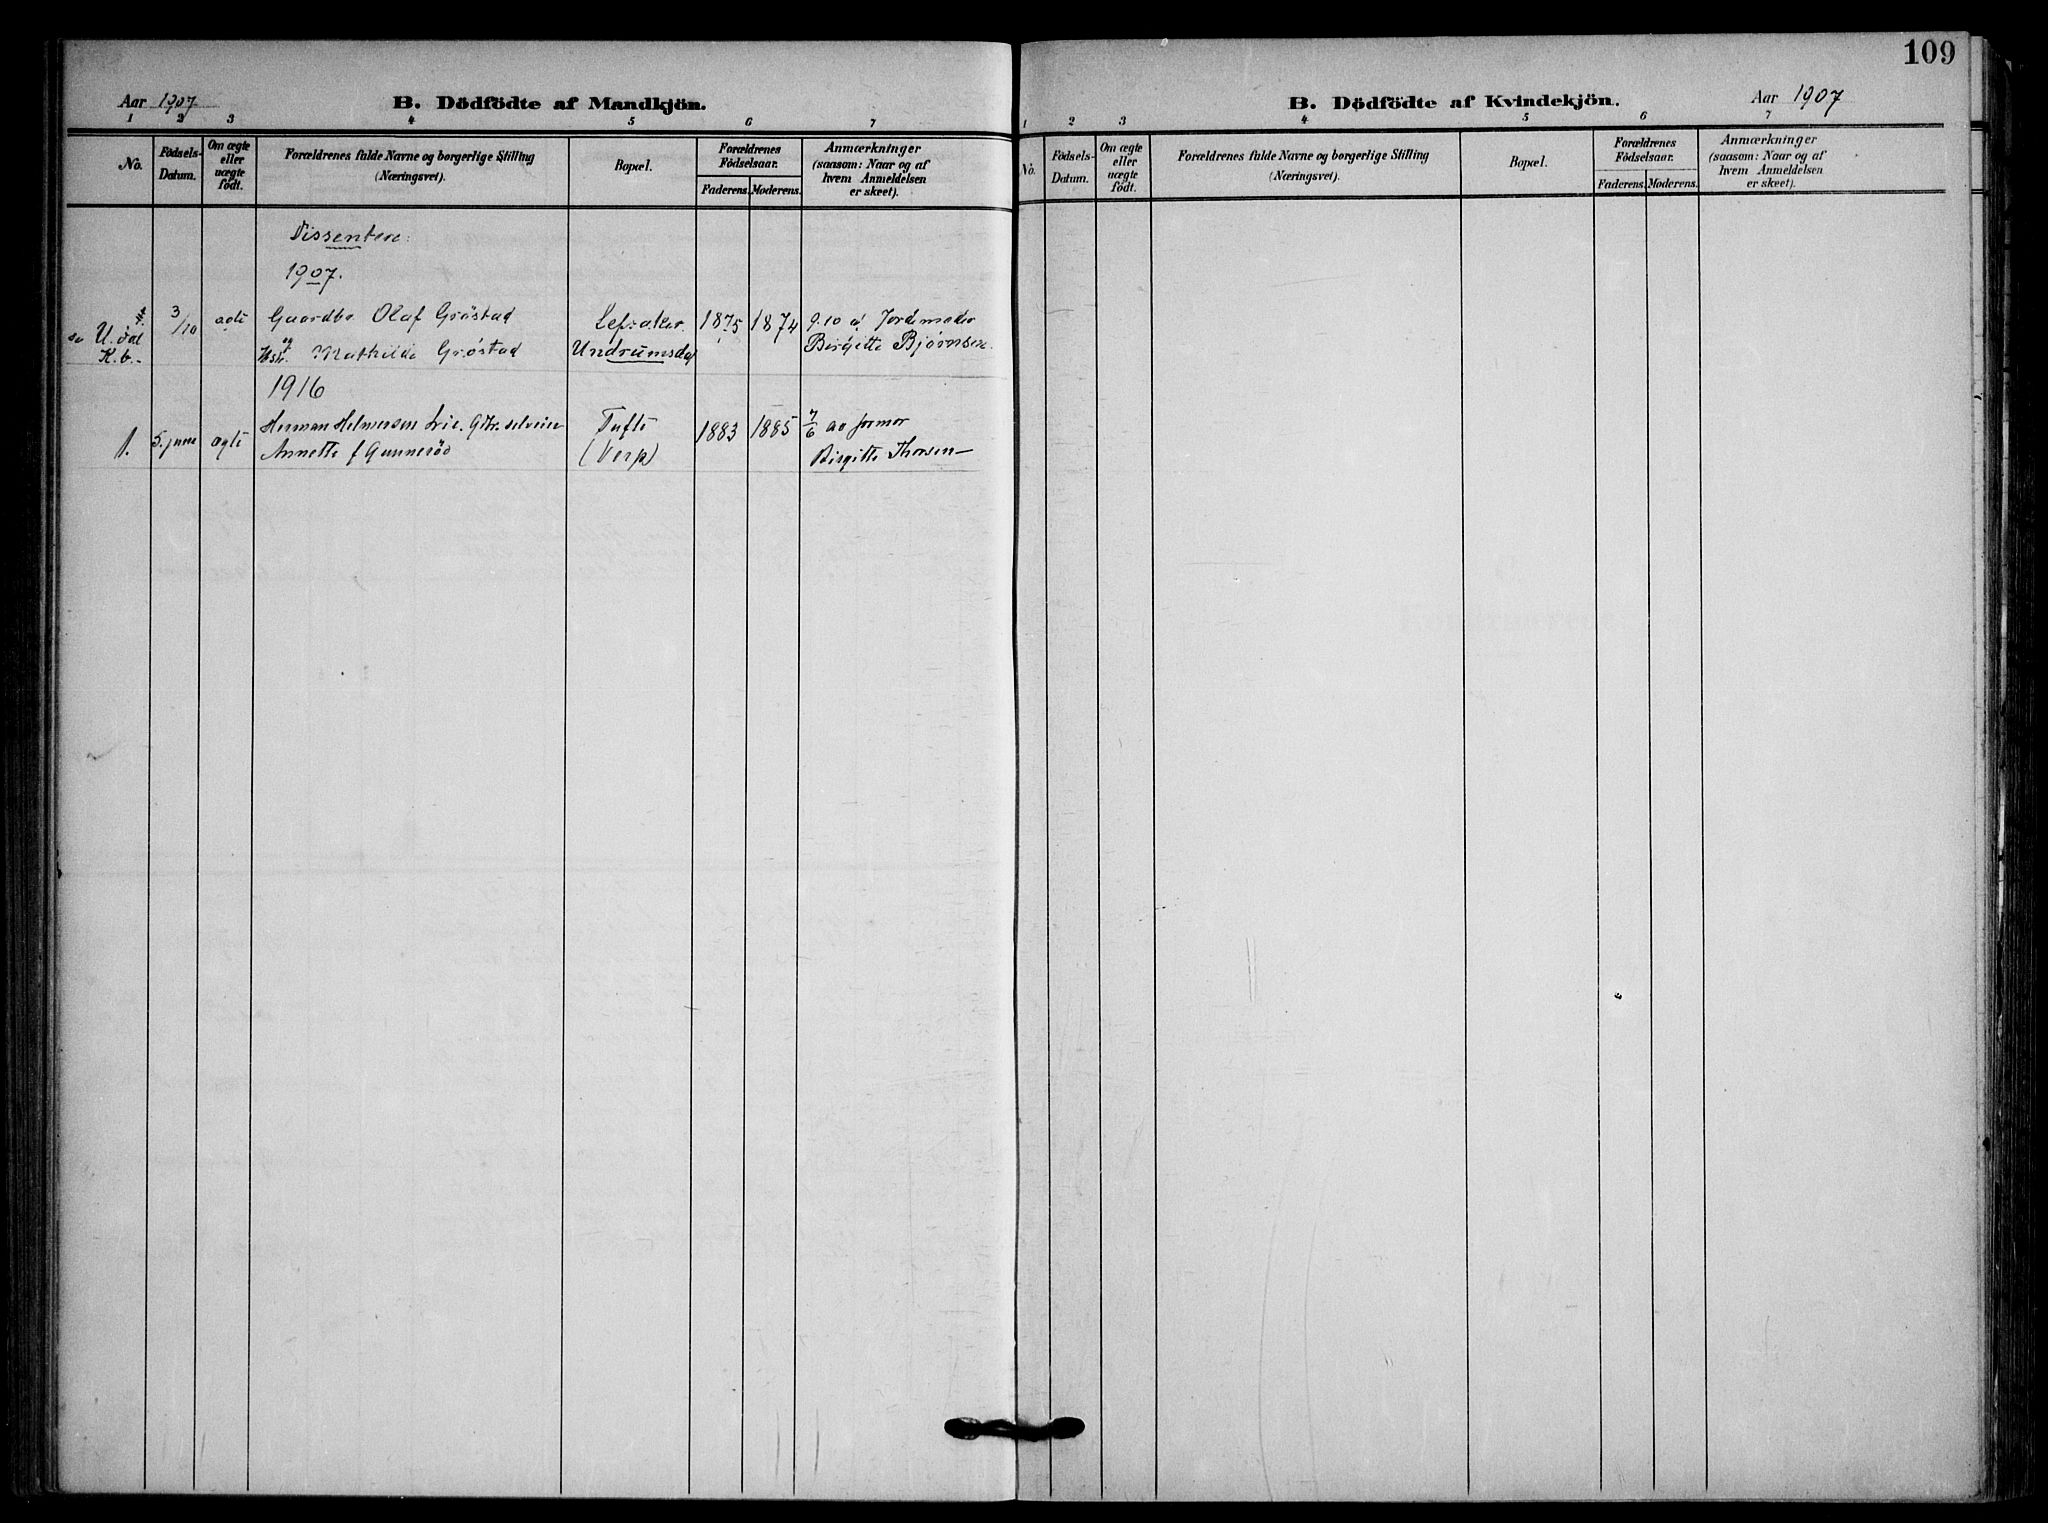 109
Aar 1907
B. Dödfödte af Mandkjön.
1 2 3 4 5 6 7
No.
Födsels-
Datum.
Om ægte
eller
uægte
födt.
Forældrenes fulde Navne og borgerlige Stilling
(Næringsvei).
Bopæl.
Forældrenes
Födselsaar.
Faderens. Moderens.
Anmærkninger
(saasom: Naar og af
hvem Anmeldelsen
er skeet).
Dissentere:
1907.
U.dal 3/10 Olaf Gröstad Lefsaker. 1875 1874 9.10 a/ Jordemoder
K.b. og Hstr. Mathilde Gröstad Undrumsdal Birgitte Bjørnsen.
1916
1. 5. june ægte Herman Helmersen Lie. selveier Tufte 1883 1885 7/6 av formor
Annette f Gunneröd (Verp) Birgitte Thorsen
B. Dödfödte af Kvindekjön.
Aar 1907
1 2 3 4 5 6 7
No.
Födsels-
Datum.
Om ægte
eller
uægte
födt.
Forældrenes fulde Navne og borgerlige Stilling
(Næringsvei).
Bopæl.
Forældrenes
Födselsaar.
Faderens. Moderens.
Anmærkninger
(saasom: Naar og af
hvem Anmeldelsen
er skeet).